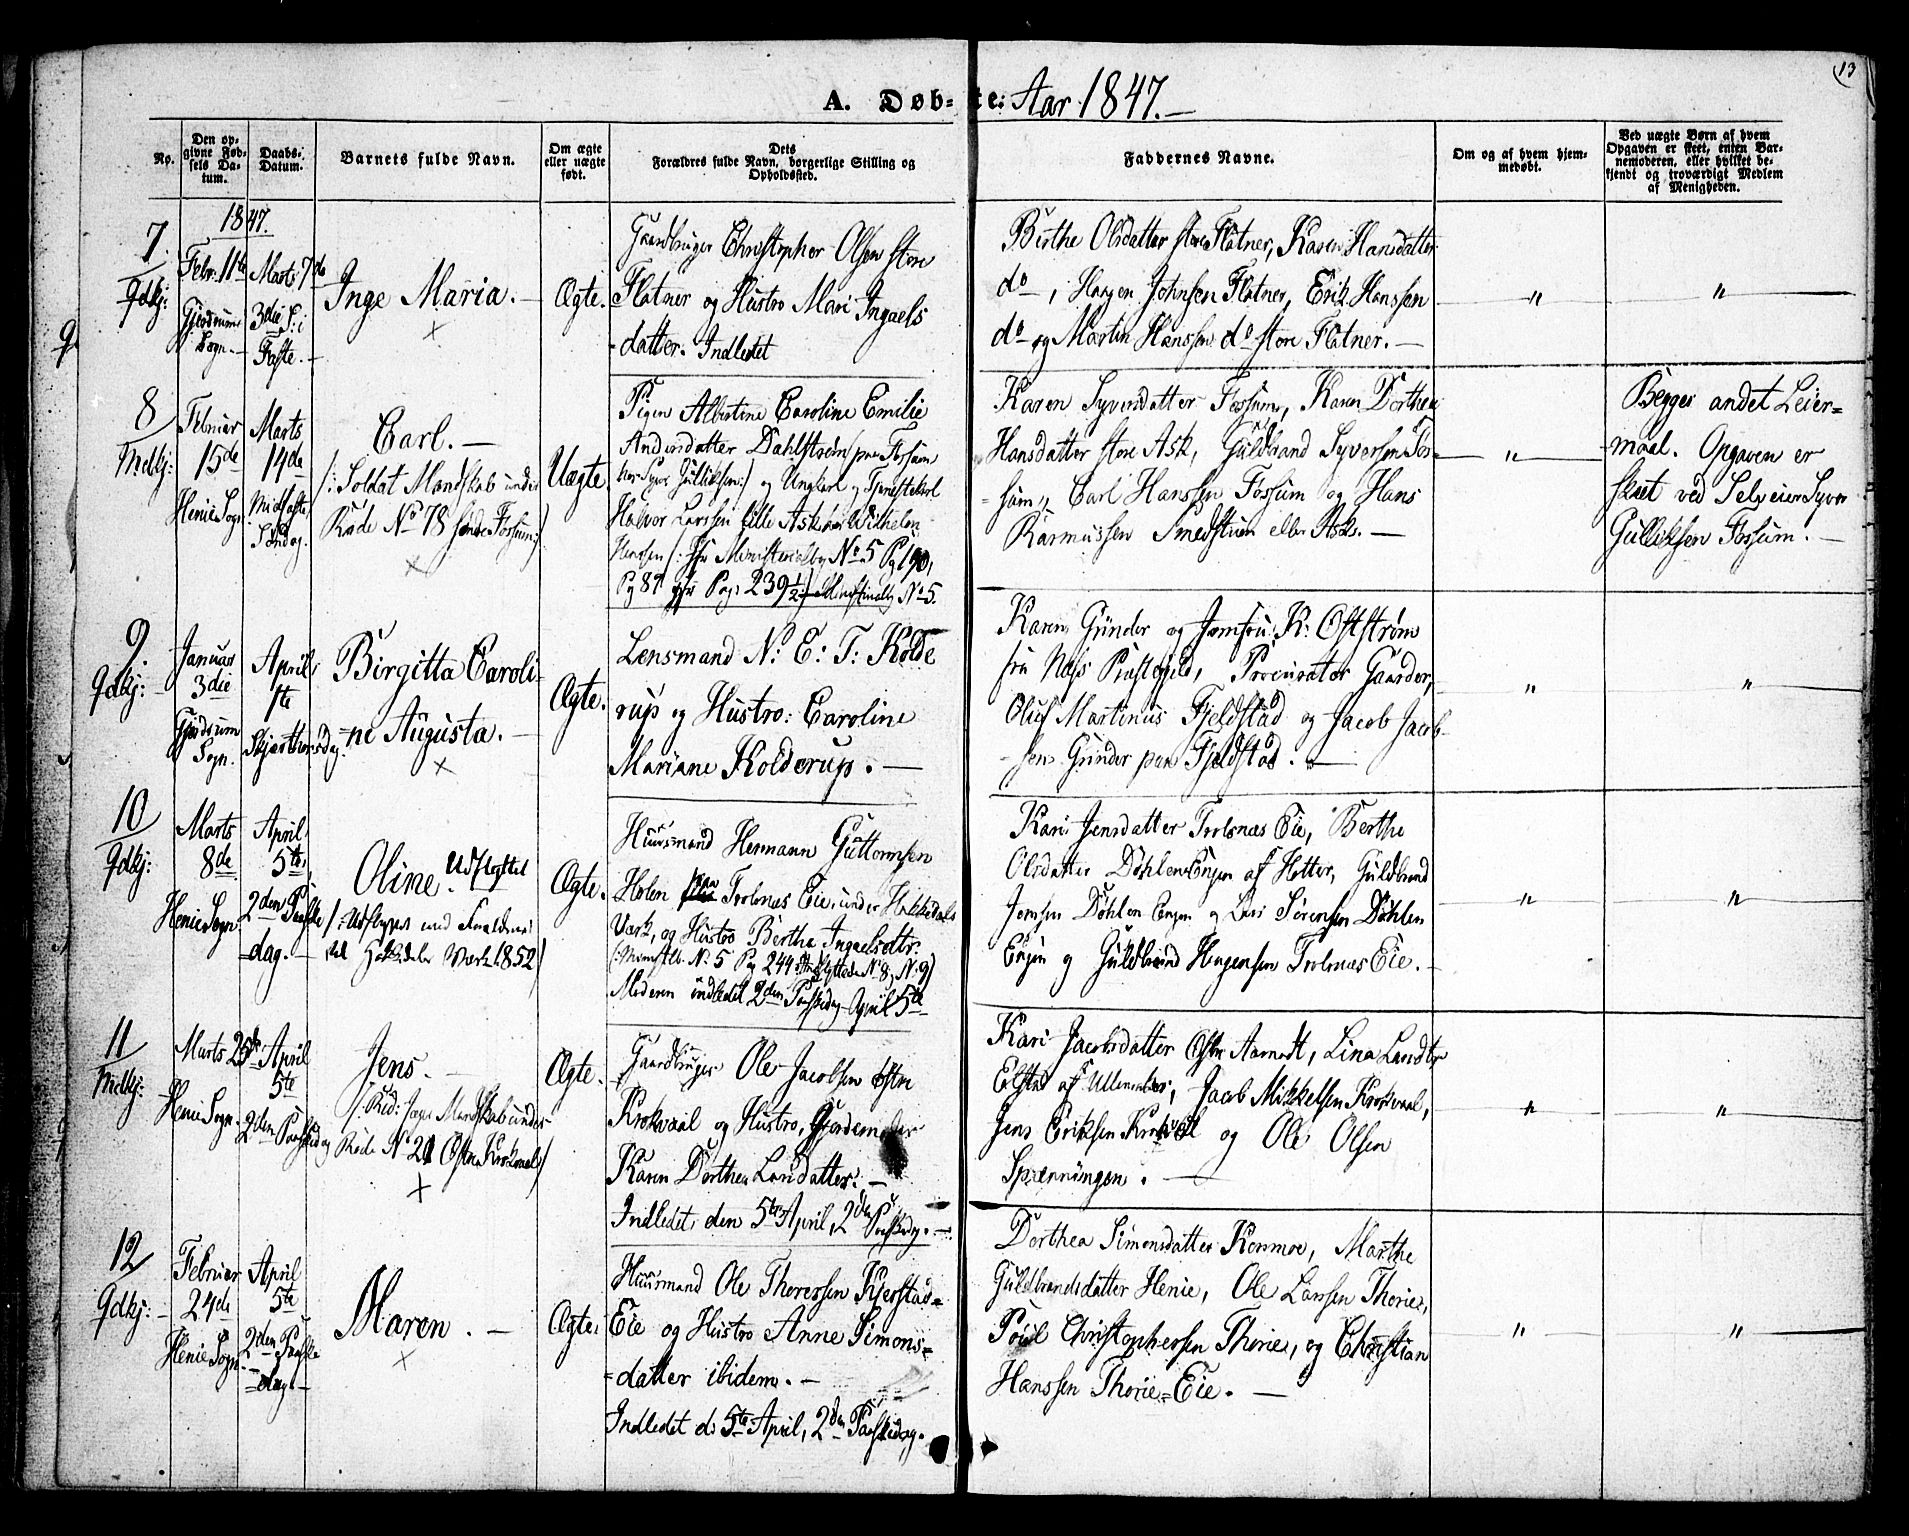 13
A. Døb- te: Aar 1847.
No.
Den op-
givne Fød-
sels Da-
tum.
Daabs-
Datum.
Barnets fulde Navn.
Om ægte
eller uægte
født.
Dets
Forældres fulde Navn, borgerlige Stilling og
Opholdssted.
Faddernes Navne.
Om og af hvem hjem-
medøbt.
Ved uægte Børn af hvem
Opgaven er skeet, enten Bar-
nemoderen, eller hvilket be-
kjendt og troværdigt Medlem
af Menigheden.
1847.
7
Qdkj:
Febr. 11te
Gjerdrums
Sogn.
Marts 7de
3die S: i
Faste.
Inge Maria.
Ægte.
Gaardbruger Christopher Olsen store
Flatner og Hustro Mari Ingaels
-datter. Indledet
Birthe Olsdatter store Flatner, Karen Hansdatter
do, Haagen Johnsen Flatner, Erik Hanssen
do og Martin Hanssen do store Flatner.
"
"
8
Mdkj:
Februar
15de
Henie Sogn
Marts
14de
Midfaste
Søndag.
Carl.
/: Soldat Mandskab under
Rode No 78 søndre Fossum :/
Uægte
Pigen Albertine Caroline Emilie
Andersdatter Dahlstrøm paa Fossum
hos Syver Gulliksen :/ og Ungkarl og Tjenestekarl
Halvor Larssen lille Ask hos Wilhelm
Hanssen /: Ministerialbog No 5 Pag 190,
Pag 87 Pag: 239 1/2 No 5.
Karen Syversdatter Fossum, Karen Dorthea
Hansdatter store Ask, Guldbrand Syversen Fos-
-sum, Carl Hanssen Fossum og Hans
Rasmussen Smedstuen eller Ask.
"
Begges andet Leier-
-maal. Opgaven er
skeet ved Selveier Syver
Gulliksen Fossum.
9
Qdkj:
Januar
3die
Gjerdrum
Sogn.
April
1te
Skjærthorsdag
Birgitta Caroli-
-ne Augusta.
Ægte.
Lensmand N: E: T: Kolde
rup og Hustro: Caroline
Mariane Kolderup.
Karen Gunder og Jomfru K: Oftstrøm
fra Næss Præstegjeld, Procurator Gaarder,
Oluf Martinus Fjeldstad og Jacob Jacob-
-sen Gunder paa Fjeldstad.
"
"
10
Qdkj:
Marts
8de
Henie Sogn
April
5te,
2den Paaske
-dag.
Oline. Udflyttet
/: Udflyttet med Forældrene
til Hakedals Værk 1852 /
Ægte.
Huusmand Hermann Guttormsen
Holen paa Trolsnæs Eie, under Hakedals
Værk, og Hustro Berthe Ingaelsdtr:
(: Ministlb. No 5 Pag 244 Indflyttede No 8, No 9)
Moderen indledet 2den Paaskedag April 5te
Kari Jensdatter Trolsnæs Eie, Berthe
Olsdatter Døhlen Engen af Hotter, Guldbrand
Jensen Døhlen Engen og Lars Sørensen Døhlen
Engen og Guldbrand Hagensen Trolsnæs Eie.
"
"
11
Mdkj:
Marts 25de
Henie Sogn.
April
5te
2den Paaskedag
Jens.
/: Rid: Jæger Mandskab under
Rode No 21 Østre Krokvaal /
Ægte.
Gaardbruger Ole Jacobsen østre
Krokvaal og Hustro, Gjordemoder
Karen Dorthea Larsdatter.
Indledet, den 5te April, 2den Paaskedag.
Kari Jacobsdatter Østre Aamodt, Lina Larsdtr
Elstad af Ullensaker, Jacob Mikkelsen Krokvaal,
Jens Eriksen Krokvaal og Ole Olsen
Spænningen.
"
"
12
Qdkj:
Februar
24de
Henie Sogn.
April
5te
2den Paaske
-dag.
Maren.
Ægte.
Huusmand Ole Thoressen Kjerstad-
Eie og Hustro Anne Simons-
-datter ibidem.
Indledet d: 5te April, 2den Paaskedag.
Dorthea Simonsdatter Konmoe, Marthe
Guldbrandsdatter Henie, Ole Larssen Thorie,
Poul Christophersen Thorie, og Christian
Hanssen Thorie-Eie.
"
"